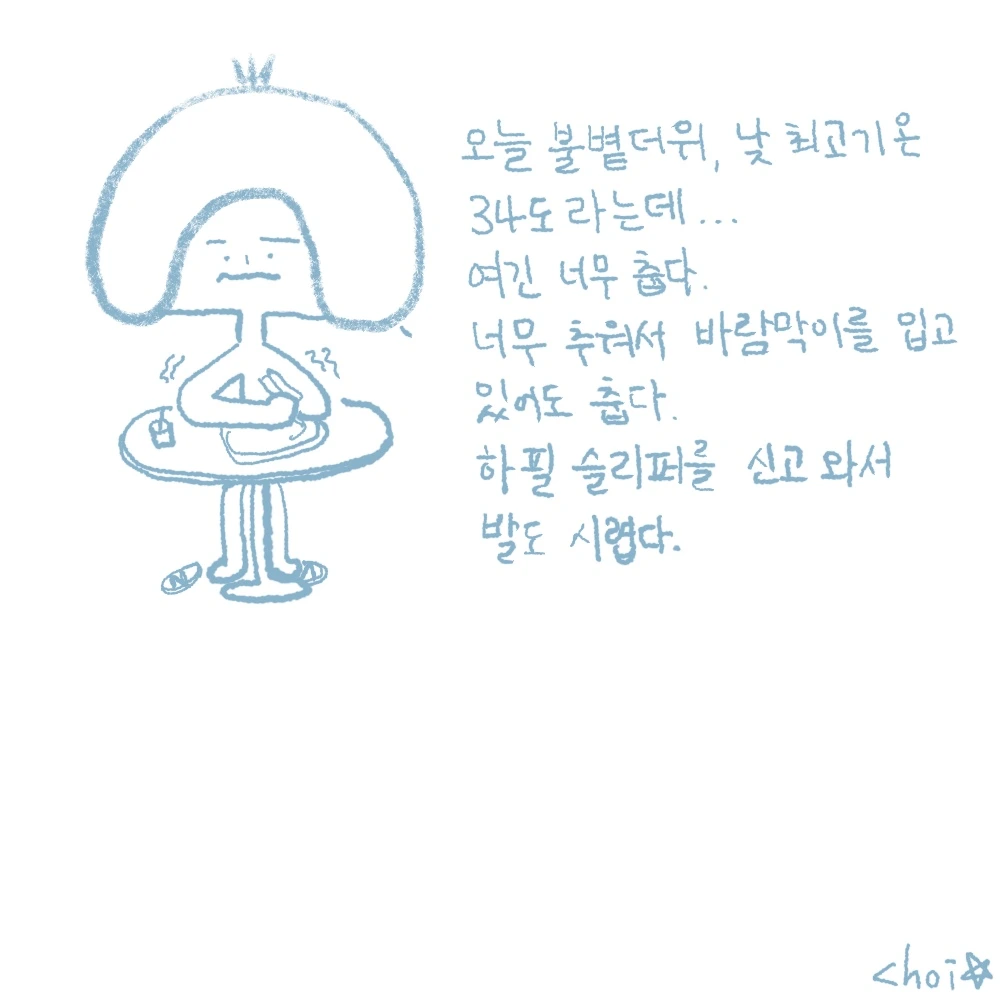 오늘 불볕더위, 낮 최고기온
34도라는데...
여긴 너무 춥다.
너무 추워서 바람막이를 입고
있어도 춥다.
하필 슬리퍼를 신고 와서
발도 시렵다.
choi☆